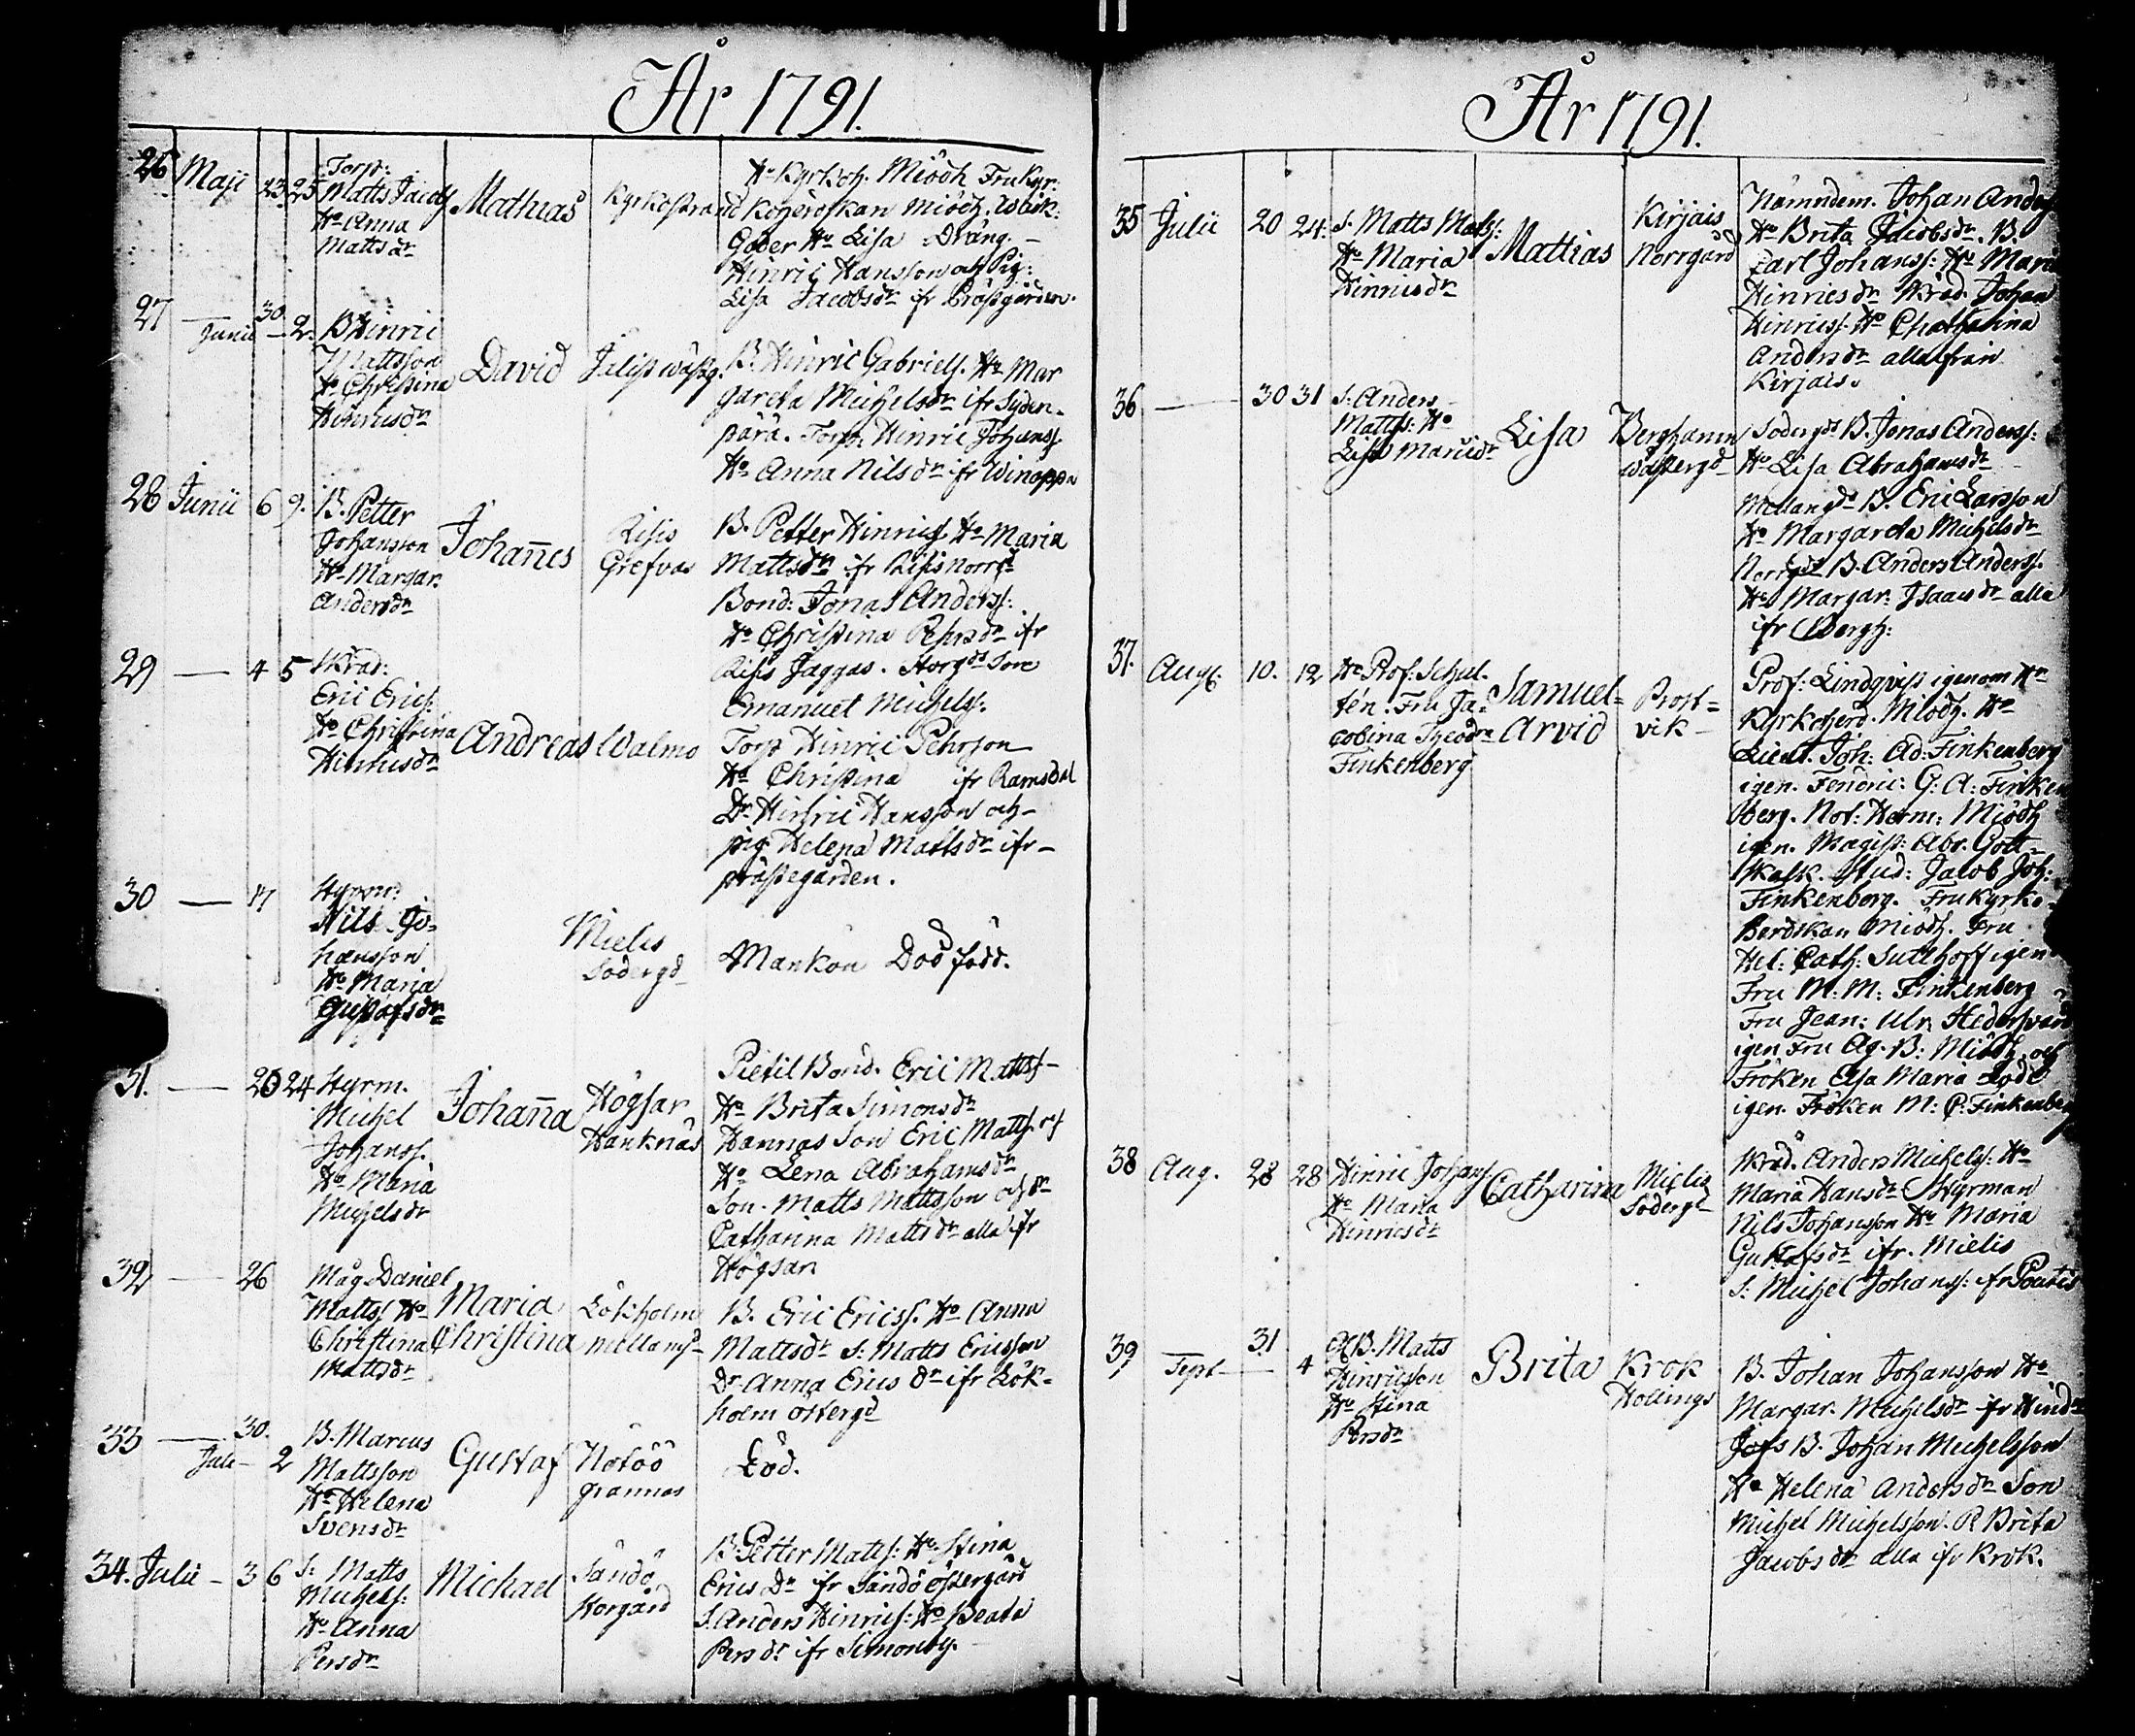 År 1791.
26 Maji 23. 25
Torp:
Matts Jacobs
Ho Anna
Matts dr
Mathias
Kyrkostrand
Hr Kyrkoh. Miödh Fru Kyr:
koherdskan Miödh.
Hu Lisa Dräng –
Hinric Hansson och Pig:
Lisa Jacobs dr ifr Prästgården.
27 — 30.
Junii — 2.
B Hinric
Mattsson
Ho Christina
Hinrics dr
David
B. Hinric Gabriels. Ho Mar
gareta Michels dr ifr Syden-
pärä. Torp: Hinric Johanss.
Ho Anna Nils dr ifr Winappa
28 Junii 6 9.
B. Petter
Johansson
Ho Margar.
Anders dr
Johanes
Risis
Grefvas
B. Petter Hinrics. Ho Maria
Matts dr ifr Risis Norrgd
Bond: Jonas Anderss:
Ho Christina Pehrs dr ifr
Risis Jaggas. Storgds Son
Emanuel Michelss.
29 — 4 5
Skräd:
Eric Erics:
Ho Christina
Hinrics dr
Andreas
Walmo
Torp Hinric Pehrson
Ho Christina ifr Ramsdal
Dr. Hinric Hansson och
pig Helena Matts dr ifr –
prästegården.
30 — 17
Styrm:
Nils Jo-
hansson
Ho Maria
Gustafs dr
Mielis
Södergd
Mankön Död född.
31. — 20 24
Styrm.
Michel
Johanss.
Ho Maria
Michels dr
Johana
Högsar
Hanknäs
Pietil Bond. Eric Matts –
Ho Brita Simons dr
Hannas Son Eric Matts. och
Ho Lena Abrahams dr
Son. Matts Mattsson och dr
Catharina Matts dr alla ifr
Högsar
32 — 26
Måg Daniel
Matts Ho
Christina
Matts dr
Maria
Christina
Lökholm
mellang
B. Eric Ericss. Ho Anna
Matts dr S: Matts Ericsson
Dr Anna Erics dr ifr Lök-
holm östergd
33 — 30.
Juli — 2
B. Marcus
Mattsson
Ho Helena
Svens dr
Gustaf
Nötöö
grannas
Död.
34. Julii – 3 6
S: Matts
Michels:
Ho Anna
Pers dr
Michael
Sandö
Storgård
B. Petter Matts: Ho Stina
Erics Dr ifr Sandö östergård
S. Anders Hinrics: Ho Beata
Pers dr ifr Simonby.
År 1791.
35 Julii 20 24:
S. Matts Mats:
Ho Maria
Hinrics dr
Mattias
Kirjais
Norrgård
Nämndem. Johan Anders
Ho Brita Jacobs dr. B.
Carl Johanss: Ho Maria
Hinrics dr Skräd. Johan
Hinricss. Ho Chatharina
Anders dr alla från
Kirjais.
36 — 30 31
S. Anders
Matts: Ho
Lisa Marcus dr
Lisa
Berghamn
Wästergd
Södergds B. Jonas Anderss:
Ho Lisa Abrahams dr
Mellangds B. Eric Larsson
Ho Margareta Michels dr
Norrgds B. Anders Anderss.
Ho Margar: Isaacs dr alla
ifr Bergh:
37. Aug. 10. 12
Hr Prof: Schul-
tén. Fru Ja-
cobina Theodra
Finkenberg
Samuel-
Arvid
Prost-
vik –
Prof: Lindqvist igenom Hr
Kyrkoherd. Miödh. Hr
Lieut. Joh: Ad: Finkenberg
igen. Fendric: G: A: Finken
berg. Not: Herm: Miödh
igen. Magist: Abr. Gott-
skalk. Stud: Jacob Joh:
Finkenberg. Fru Kyrko-
herdskan Miödh. Fru
Hel: Cath: Sutthoff igen
Fru M: M: Finkenberg
Fru Jean: Ulr Hedersvärd
igen Fru Ag. B: Miödh och
Fröken Elsa Maria Lode
igen. Fröken M: C: Finkenberg
38 Aug. 28 28
Hinric Johans
Ho Maria
Hinrics dr
Catharina
Mielis
Södergd
Skräd. Anders Michels: Ho
Maria Hans dr Styrman
Nils Johansson Ho Maria
Gustafs dr ifr. Mielis
S: Michel Johanss: ifr
39 — 31
Sept — 4
B. Matts
Hinricsson
Ho Stina
Pers dr
Brita
Krok
Hollings
B. Johan Johansson Ho
Margar. Michels dr ifr
B. Johan Michelsson
Ho Helena Anders dr Son
Michel Michelsson. P. Brita
Jacobs dr alla ifr Krok.